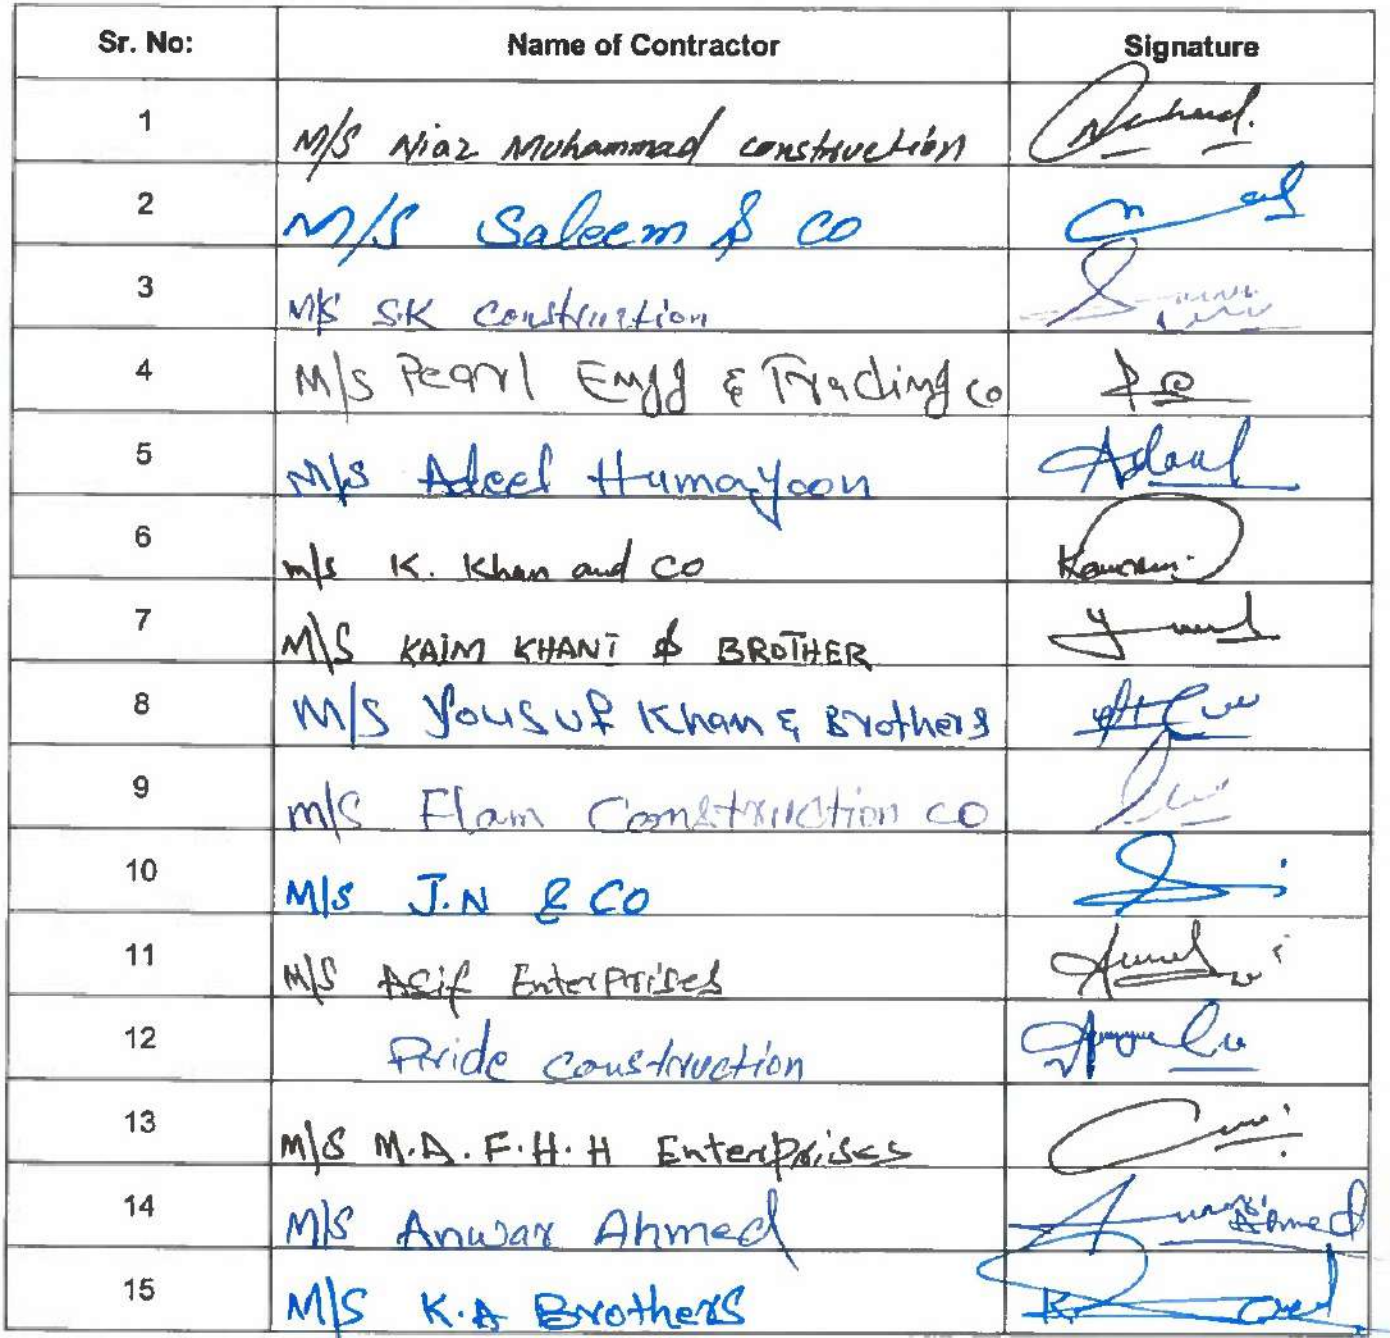 Sr. No: Name of Contractor Signature
1 M/S Niaz Muhammad construction
2 M/S Saleem & CO
3 M/S S.K Construction
4 M/S Pearl Engg & Trading co
5 M/S Adeel Humayoon
6 m/s K. Khan and CO
7 M/S KAIM KHANI & BROTHER
8 M/S Yousuf Khan & Brothers
9 m/s Flam Construction co
10 M/S J.N & CO
11 M/S Asif Enterprises
12 Pride construction
13 M/S M.A.F.H.H Enterprises
14 M/S Anwar Ahmed Ahmed
15 M/S K.A Brothers